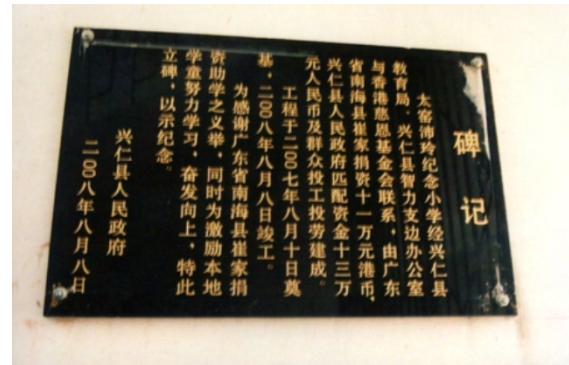 碑记
太窑沛玲纪念小学经兴仁县
教育局、兴仁县智力支边办公室
与香港慈恩基金会联系,由广东
省南海县崔家捐资十一万元港币,
兴仁县人民政府匹配资金十三万
元人民币及群众投工投劳建成。
工程于二00七年八月十日奠
基,二00八年八月八日竣工。
为感谢广东省南海县崔家捐
资助学之义举,同时为激励本地
学童努力学习,奋发向上,特此
立碑,以示纪念。
兴仁县人民政府
二00八年八月八日